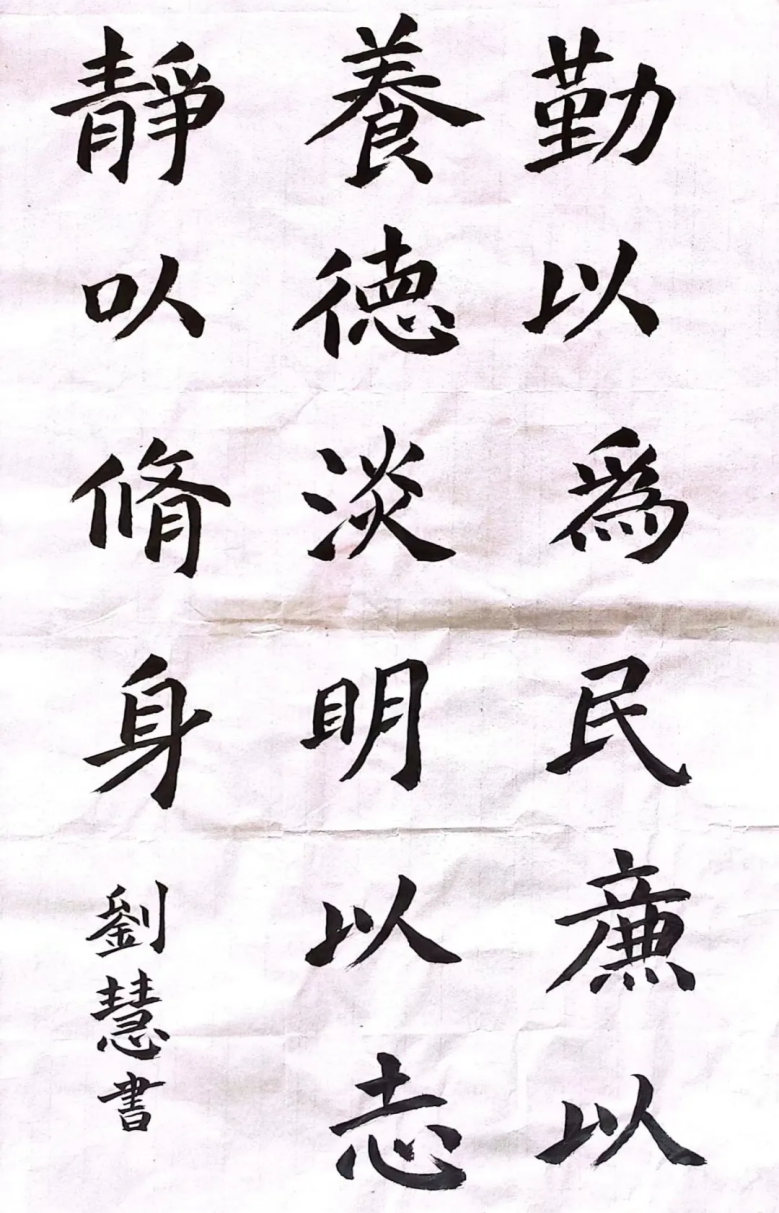 勤以爲民廉以
養德淡明以志
靜以脩身
劉慧書